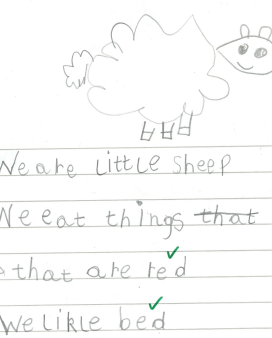 We are little sheep
We eat things that
that are red
We likle bed